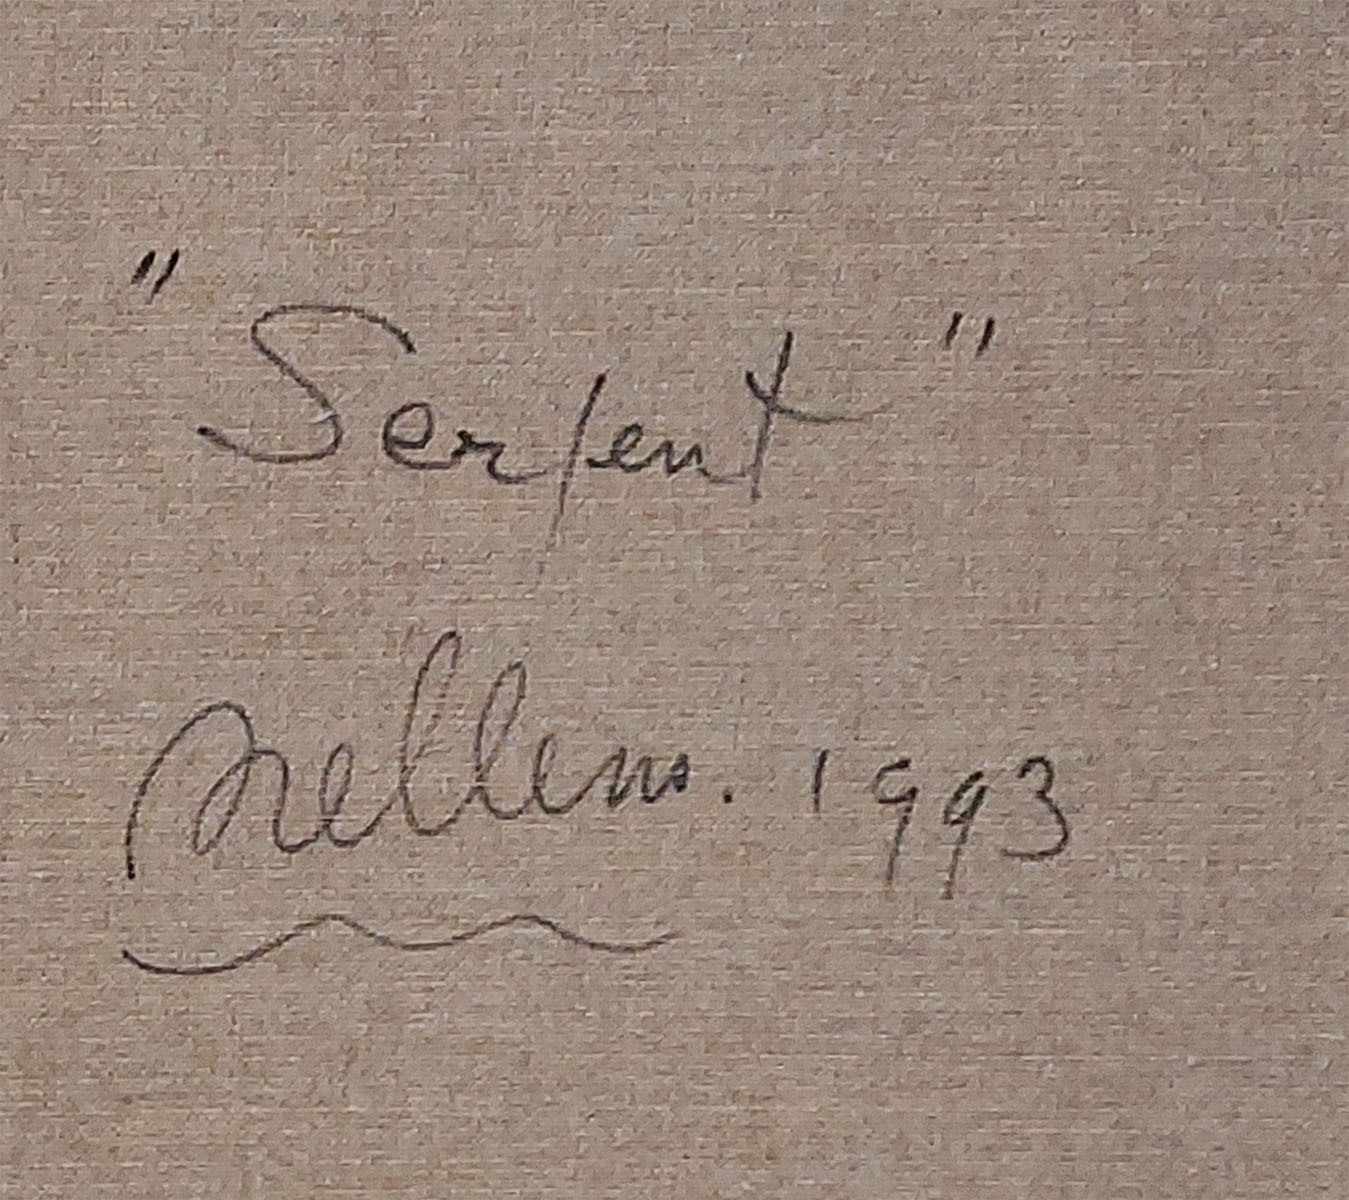 "Serpent"
Nellens. 1993